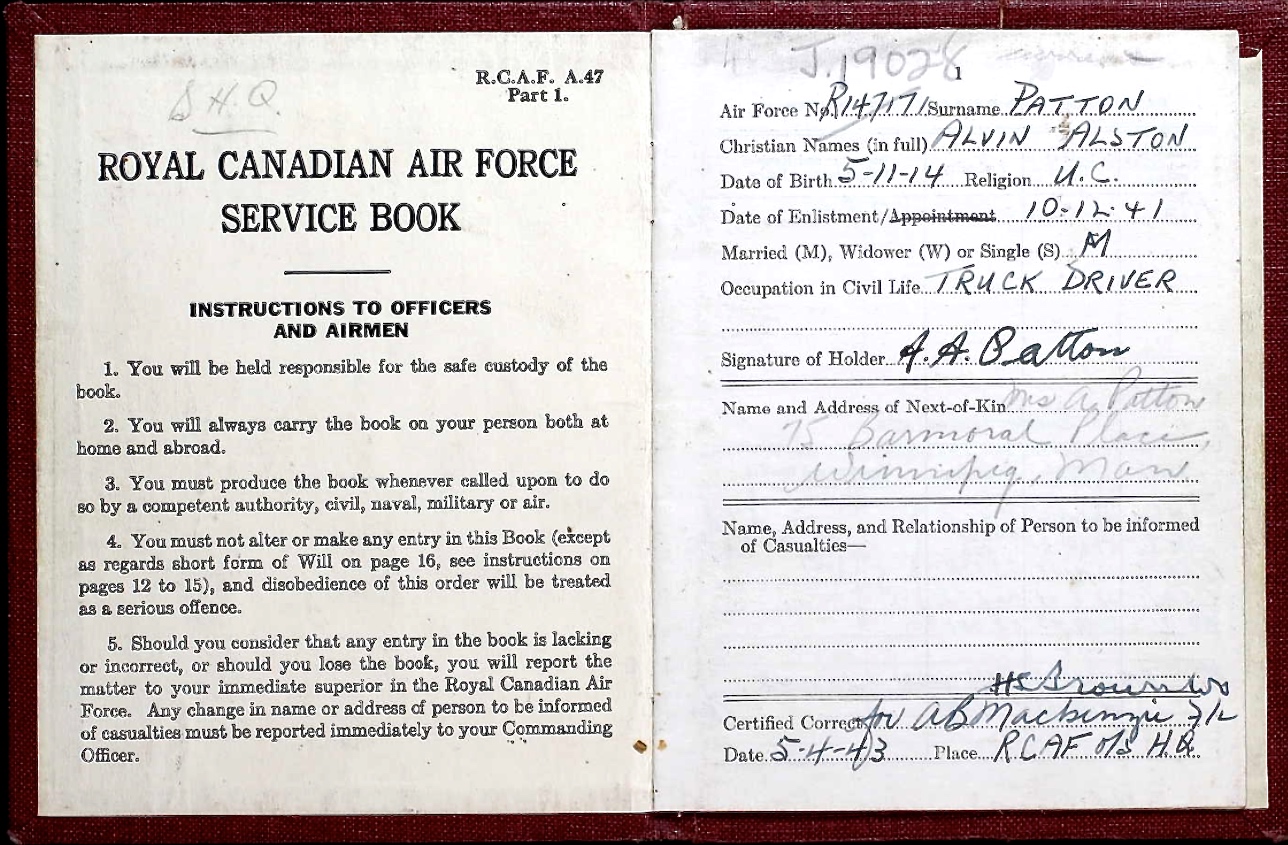 R.C.A.F. A.47
Part 1.
S.H.Q.
ROYAL CANADIAN AIR FORCE
SERVICE BOOK
INSTRUCTIONS TO OFFICERS
AND AIRMEN
1. You will be held responsible for the safe custody of the
book.
2. You will always carry the book on your person both at
home and abroad.
3. You must produce the book whenever called upon to do
so by a competent authority, civil, naval, military or air.
4. You must not alter or make any entry in this Book (except
as regards short form of Will on page 16, see instructions on
pages 12 to 15), and disobedience of this order will be treated
as a serious offence.
5. Should you consider that any entry in the book is lacking
or incorrect, or should you lose the book, you will report the
matter to your immediate superior in the Royal Canadian Air
Force. Any change in name or address of person to be informed
of casualties must be reported immediately to your Commanding
Officer.
J.19028
1
Air Force No. R147171 Surname PATTON
Christian Names (in full) ALVIN ALSTON
Date of Birth 5-11-14 Religion U.C.
Date of Enlistment/Appointment 10-12-41
Married (M), Widower (W) or Single (S) M
Occupation in Civil Life TRUCK DRIVER
Signature of Holder A. A. Patton
Name and Address of Next-of-Kin Mrs A. Patton
75 Barmoral Place,
Winnipeg, Man
Name, Address, and Relationship of Person to be informed
of Casualties—
Brown
Certified Correct for AB Mackenzie F/L
Date 5-4-43 Place RCAF o/s H.Q.